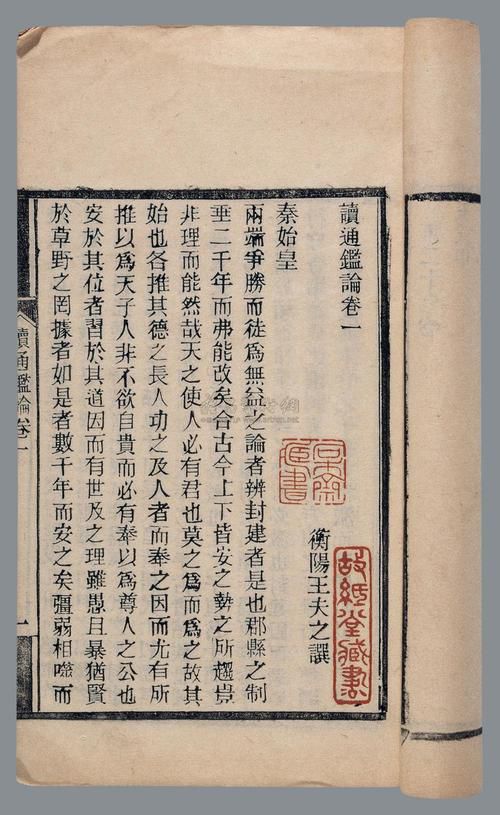 讀通鑑論卷一
衡陽王夫之譔
秦始皇
兩端爭勝而徒爲無益之論者辨封建者是也郡縣之制
垂二千年而弗能改矣合古今上下皆安之勢之所趨豈
非理而能然哉天之使人必有君也莫之爲而爲之故其
始也各推其德之長人功之及人者而奉之因而尤有所
推以爲天子人非不欲自貴而必有奉以爲尊人之公也
安於其位者習於其道因而有世及之理雖愚且暴猶賢
於草野之罔據者如是者數千年而安之矣彊弱相噬而
讀通鑑論卷一
一
故紙堂藏書